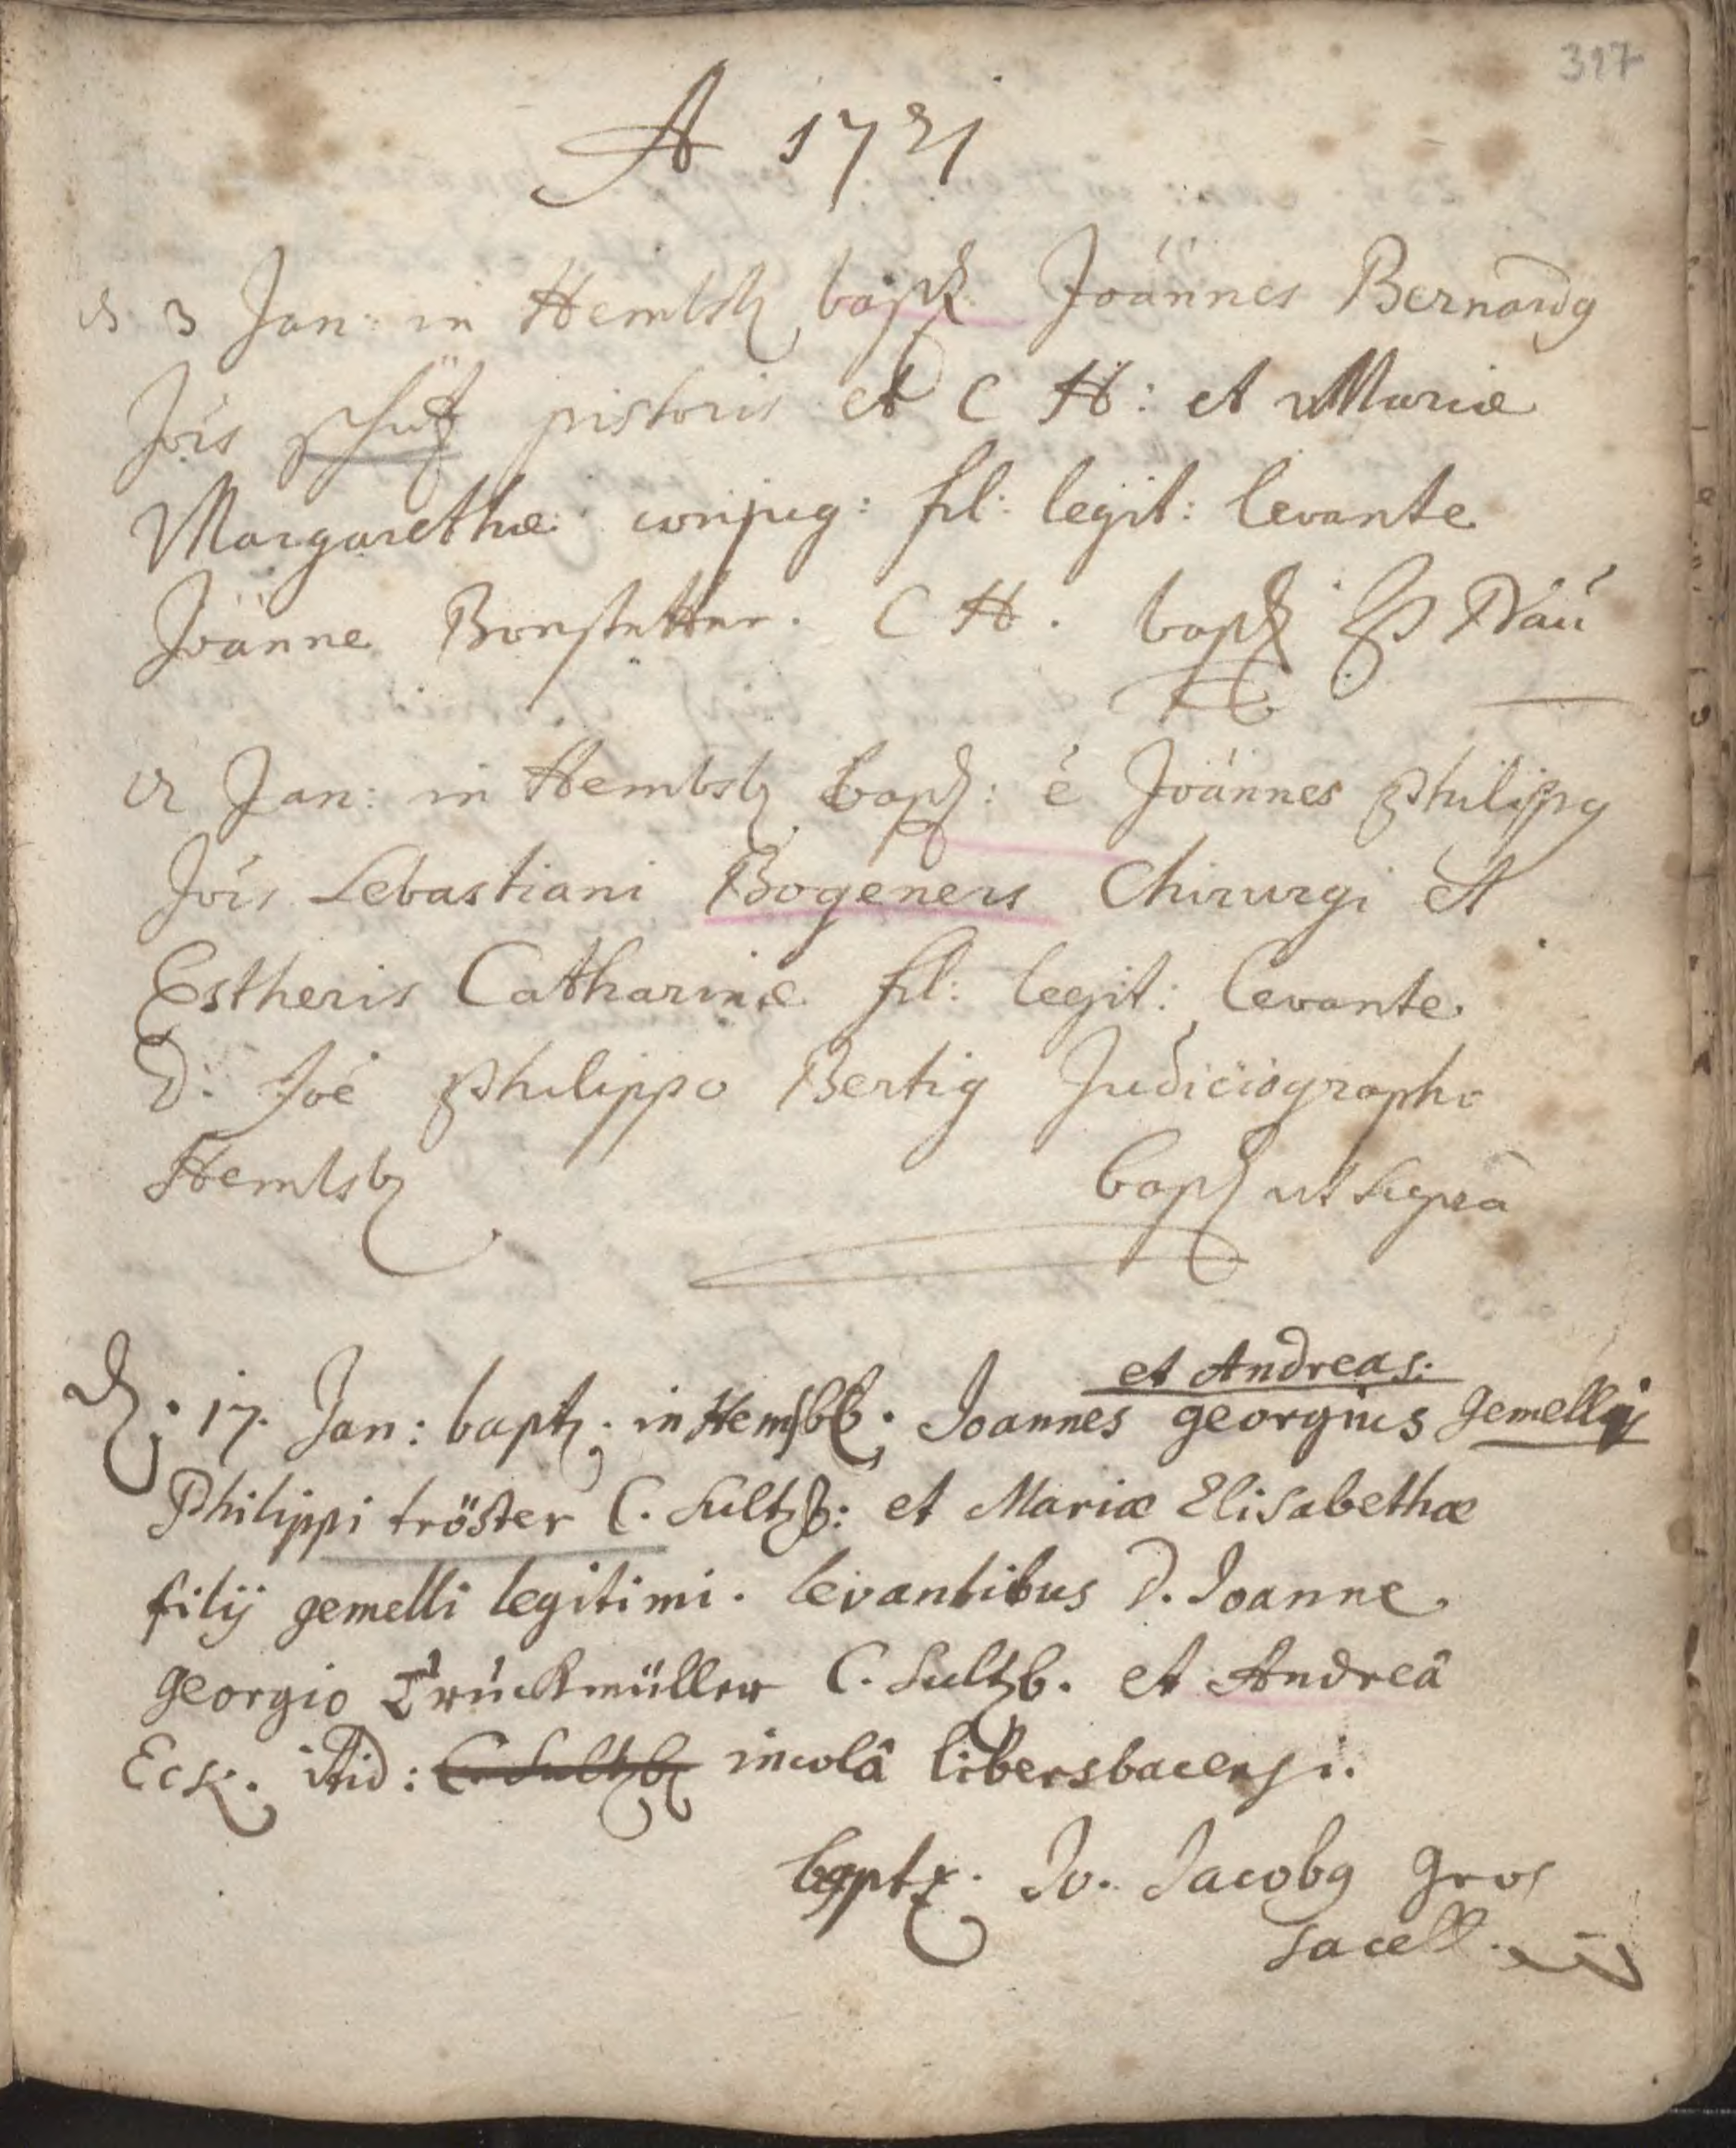 317
A 1721
3 Jan: in Hembsb bapt Joannes Bernardg
Jois Schütz pistoris et C H: et Mariæ
Margarethæ conjug: fil: legit: levante
Joanne Bonstetter. C H. bapt P
Jan: in Hembsb bapt: é Joannes Philippg
Jois Sebastiani Bogeners Chirurgi et
Estheris Catharinæ fil: legit: levante
D: Joé Philippo Bertig Judiciographo
Hembsb bapt ut supra
et Andreas:
d: 17. Jan: bapt. in Hemsbb. Joannes georgius gemelli
Philippi tröster C. Sultzb: et Mariæ Elisabethæ
filij gemelli legitimi. levantibus D. Joanne
georgio Trückmüller C. Sultzb. et Andreâ
Eck. itid: C. Sultzb incolâ libersbacensi.
baptx. Jo. Jacobg Gros
sacell.